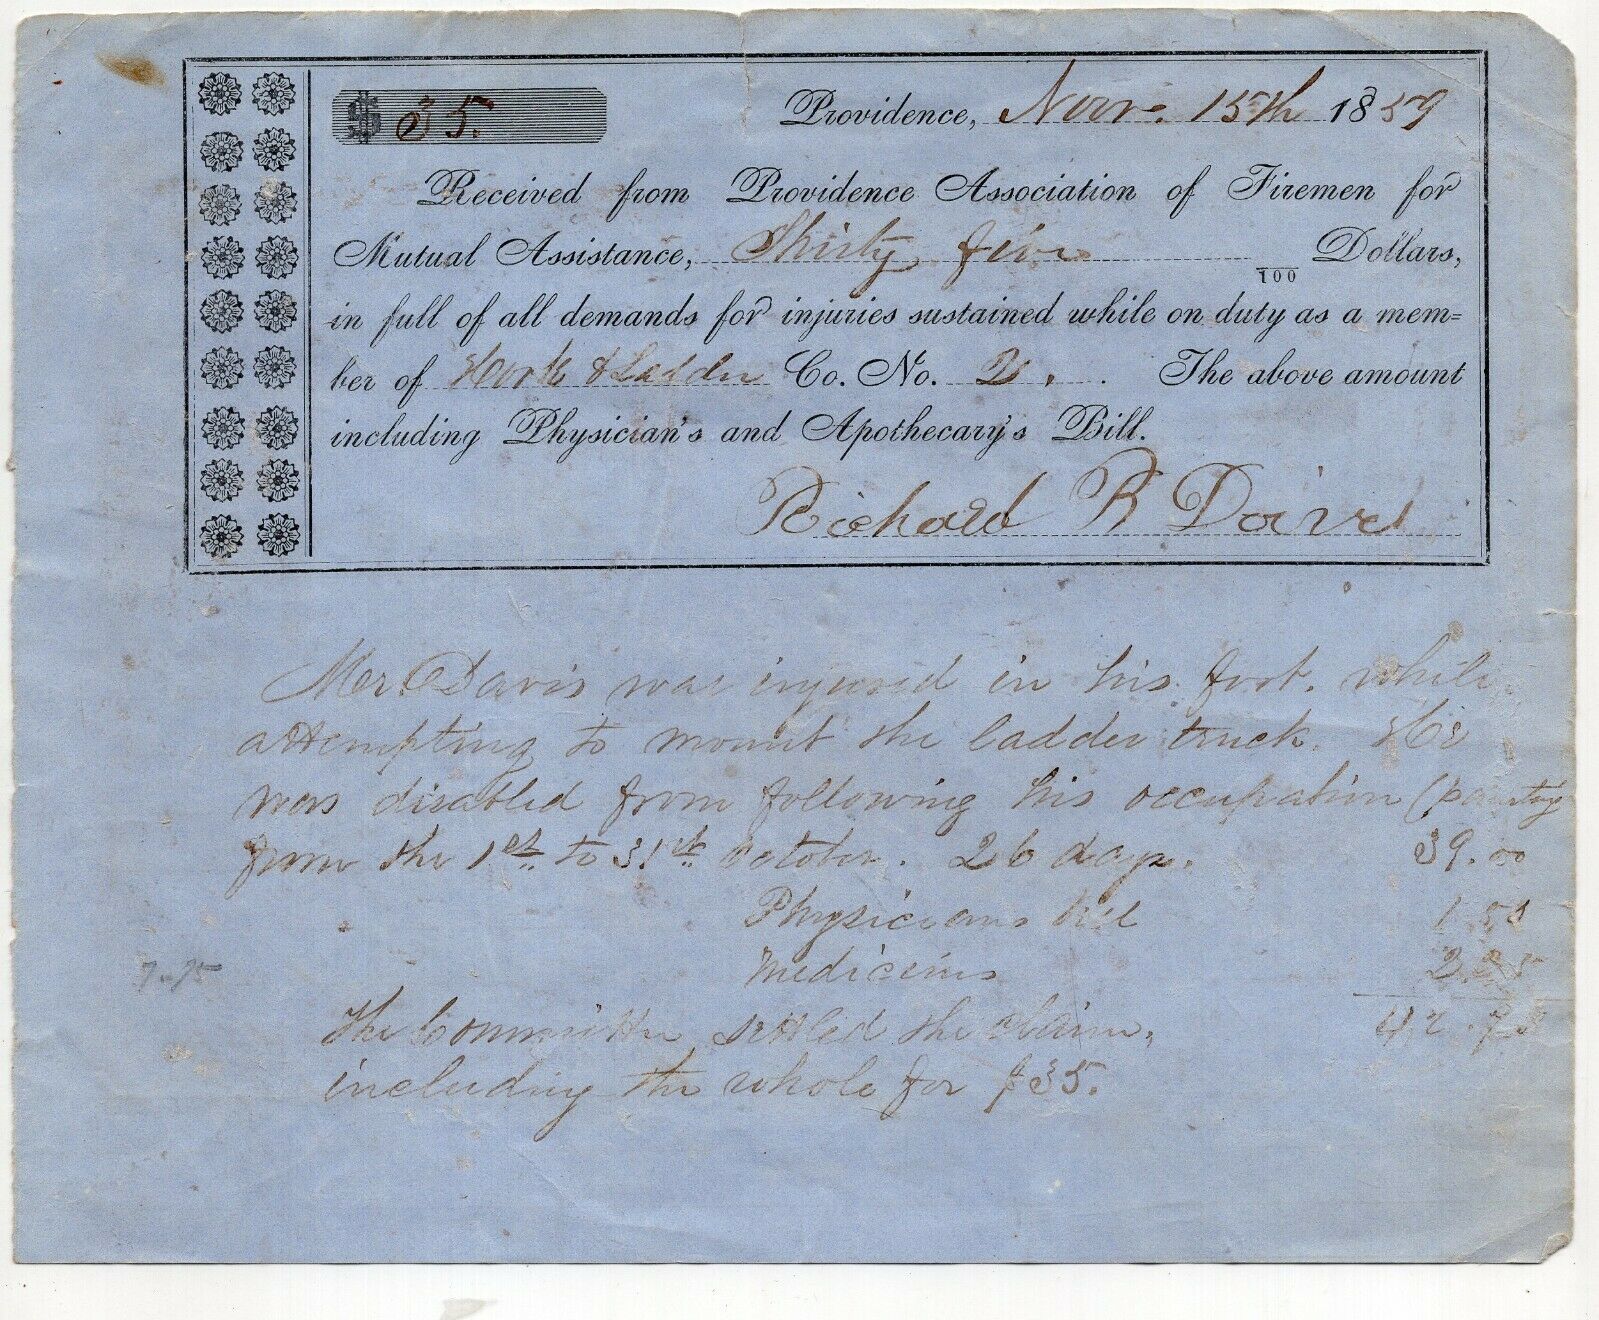 $ 35.
Providence, Nov. 15th 1859
Received from Providence Association of Firemen for
Mutual Assistance, Thirty five /100 Dollars,
in full of all demands for injuries sustained while on duty as a mem=
ber of Hook & Ladder Co. No. 2. The above amount
including Physician's and Apothecary's Bill.
Richard R Davis
Mr. Davis was injured in his foot. while
attempting to mount the ladder truck. He
was disabled from following his occupation (painting
from the 1st to 31st October. 26 days. 39.00
Physicians bill 1.50
Medicines 2.25
7.75
The Committee settled the Claim, 42.75
including the whole for $35.